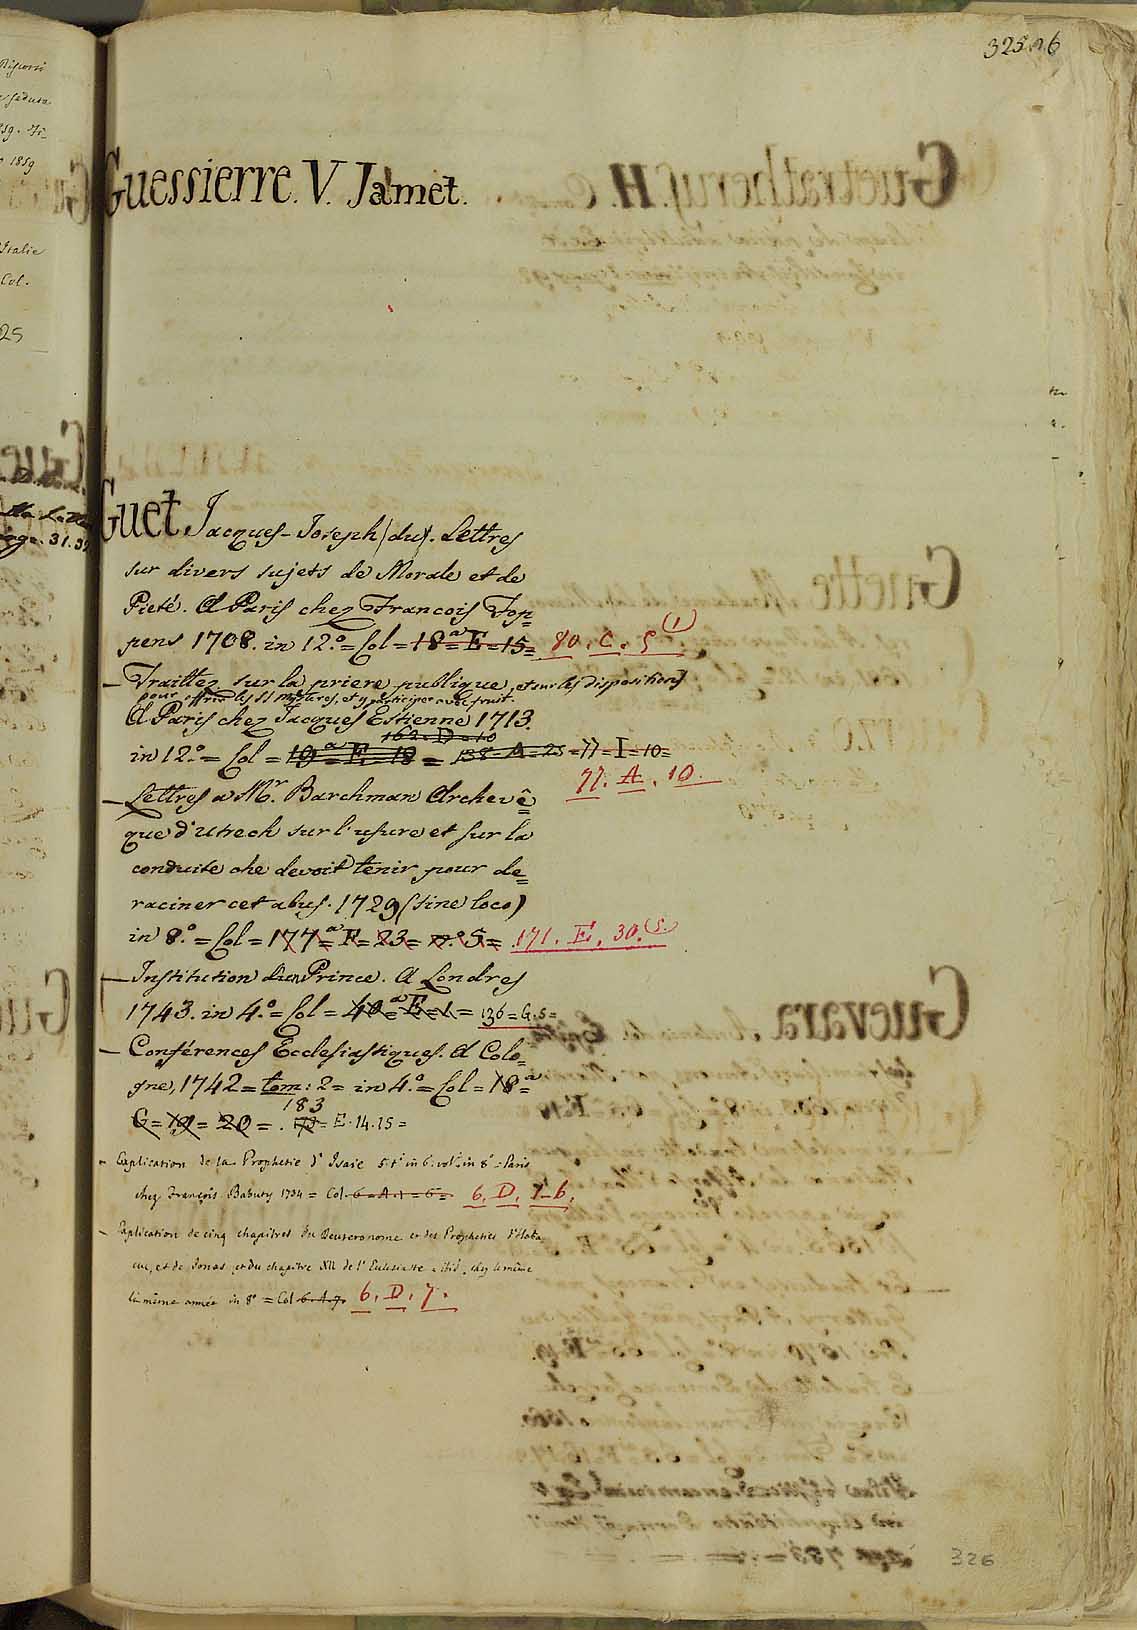 Guessierre. V. Jamet.
Guet Jacques-Joseph (du). Lettres
sur divers sujets de Morale et de
Pieté. A Paris chez Francois Fop=
pens 1708. in 12.° = Col = 18 = a E = 15 = 80. C. 5 (1)
– Traittez sur la priere publique, et sur les dispositions
pour offrir les SS mysteres, et y participer avec fruit.
A Paris chez Jacques Estienne 1713.
162 = D = 10
in 12.° = Col = 19 = a E = 18 = 138 = A = 25 = 77 = I = 10 =
77. A. 10.
– Lettres a Mr. Barchman Archevê=
que d'Utrech sur l'usure et sur la
conduite che devoit tenir pour de=
raciner cet abus. 1729 (sine loco)
in 8.° = Col = 177 = a F = 23 = n.° 5 = 171. E. 30. (5.
– Institution d'un Prince. A Londres
1743. in 4.° = Col = 40 = a E = 1. = 136 = G. 5 =
– Conférences Ecclesiastiques. A Colo=
gne, 1742 = tom: 2 = in 4.° = Col = 18 = a
183
G = 19 = 20 = . = E. 14. 15 =
– Explication de la Prophetie d'Isaie 5. t. in 6. vol. in 8° = Paris
chez François Babuty 1734 = Col. 6 = A. 1 = 6 = 6. D. 1–6.
– Explication de cinq chapitres du Deuteronome et des Propheties d'Haba
cuc, et de Jonas, et du chapitre XII de l'Eclesiaste = Ibid. chez le même
la même année in 8° = Col 6. A. 7. 6. D. 7.
326